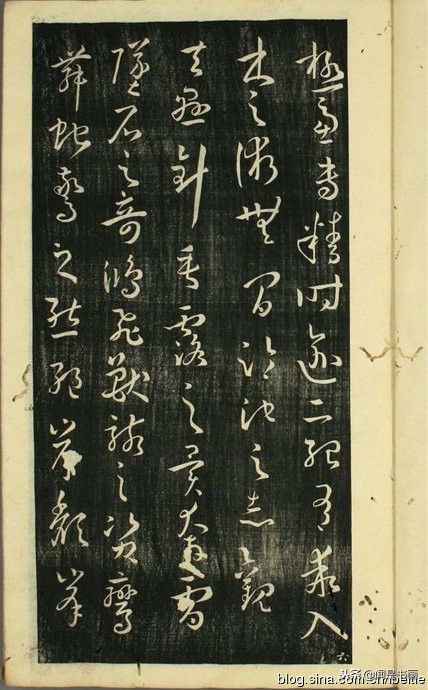 極慮專精時逾二紀有乖入
木之術無間臨池之志觀
夫懸針垂露之異奔雷
墜石之奇鴻飛獸駭之資鸞
舞蛇驚之態絕岸頹峯
头条@闻是书画